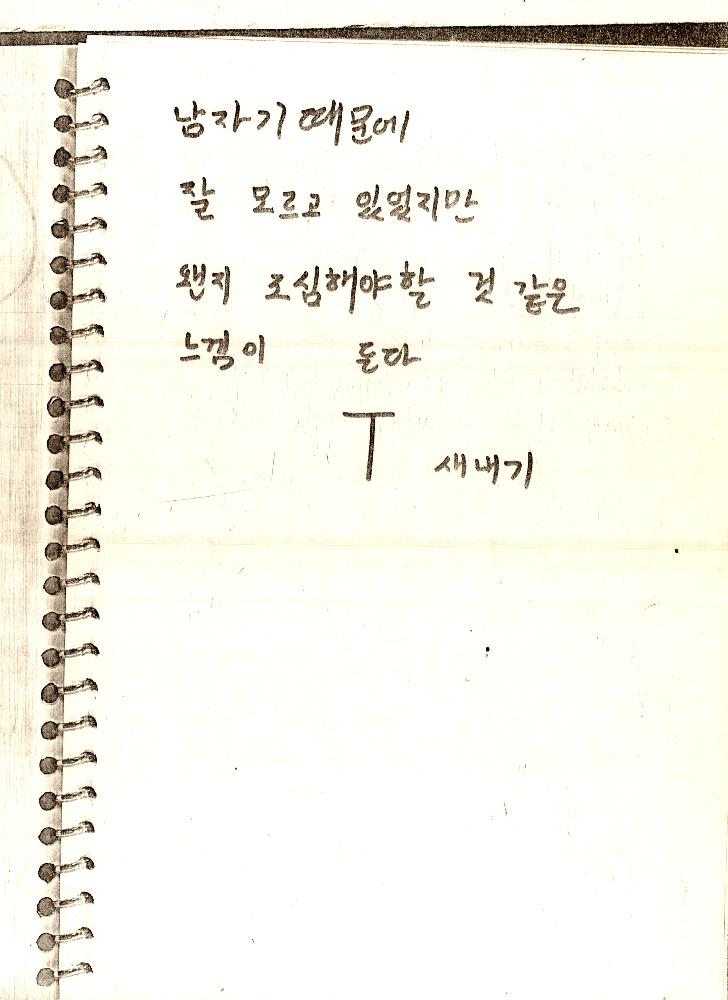 남자기 때문에
잘 모르고 있었지만
왠지 조심해야 할 것 같은
느낌이 든다
T 새내기